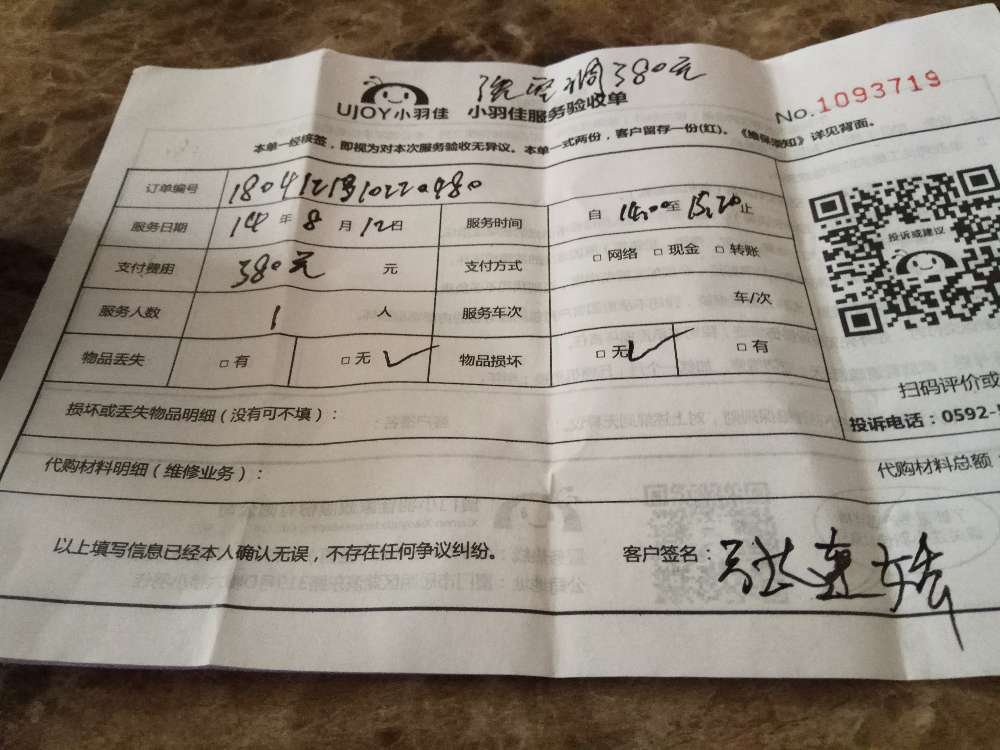 洗空调380元
UJOY小羽佳 小羽佳服务验收单
No.1093719
本单一经核签，即视为对本次服务验收无异议。本单一式两份，客户留存一份(红)。《维保须知》详见背面。
订单编号
服务日期 14年8月12日 服务时间 自14:00至15:20止
支付费用 380元 元 支付方式 □网络 □现金 □转账
服务人数 1 人 服务车次 车/次
物品丢失 □有 □无 ✓ 物品损坏 □无 ✓ □有
投诉或建议
扫码评价或
损坏或丢失物品明细（没有可不填）：
投诉电话：0592-
代购材料明细（维修业务）：
代购材料总额：
以上填写信息已经本人确认无误，不存在任何争议纠纷。 客户签名：